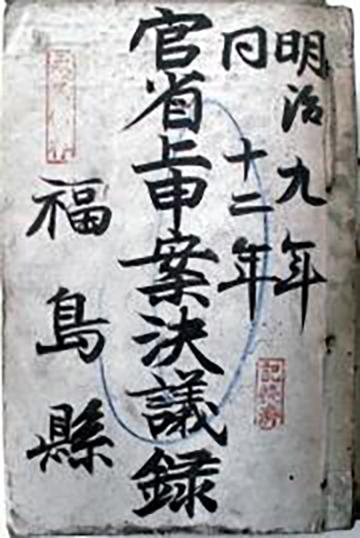 明治九年
同十二年
官省上申案決議録
福島縣